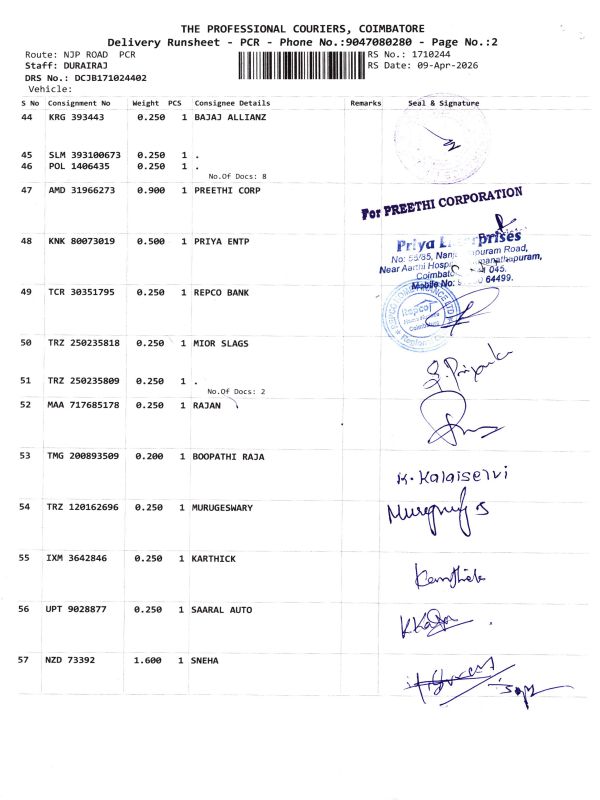 THE PROFESSIONAL COURIERS, COIMBATORE
Delivery Runsheet - PCR - Phone No.:9047080280 - Page No.:2
Route: NJP ROAD PCR
RS No.: 1710244
Staff: DURAIRAJ
RS Date: 09-Apr-2026
DRS No.: DCJB171024402
Vehicle:
S No Consignment No Weight PCS Consignee Details Remarks Seal & Signature
44 KRG 393443 0.250 1 BAJAJ ALLIANZ
45 SLM 393100673 0.250 1 .
46 POL 1406435 0.250 1 .
No.Of Docs: 8
47 AMD 31966273 0.900 1 PREETHI CORP
For PREETHI CORPORATION
48 KNK 80073019 0.500 1 PRIYA ENTP
Priya
No: 55/85,
Road,
Near Aarthi
Mobile No: 64499.
49 TCR 30351795 0.250 1 REPCO BANK
Repco
50 TRZ 250235818 0.250 1 MIOR SLAGS
51 TRZ 250235809 0.250 1 .
No.Of Docs: 2
52 MAA 717685178 0.250 1 RAJAN
53 TMG 200893509 0.200 1 BOOPATHI RAJA
K. Kalaiselvi
54 TRZ 120162696 0.250 1 MURUGESWARY
55 IXM 3642846 0.250 1 KARTHICK
Karthick
56 UPT 9028877 0.250 1 SAARAL AUTO
57 NZD 73392 1.600 1 SNEHA